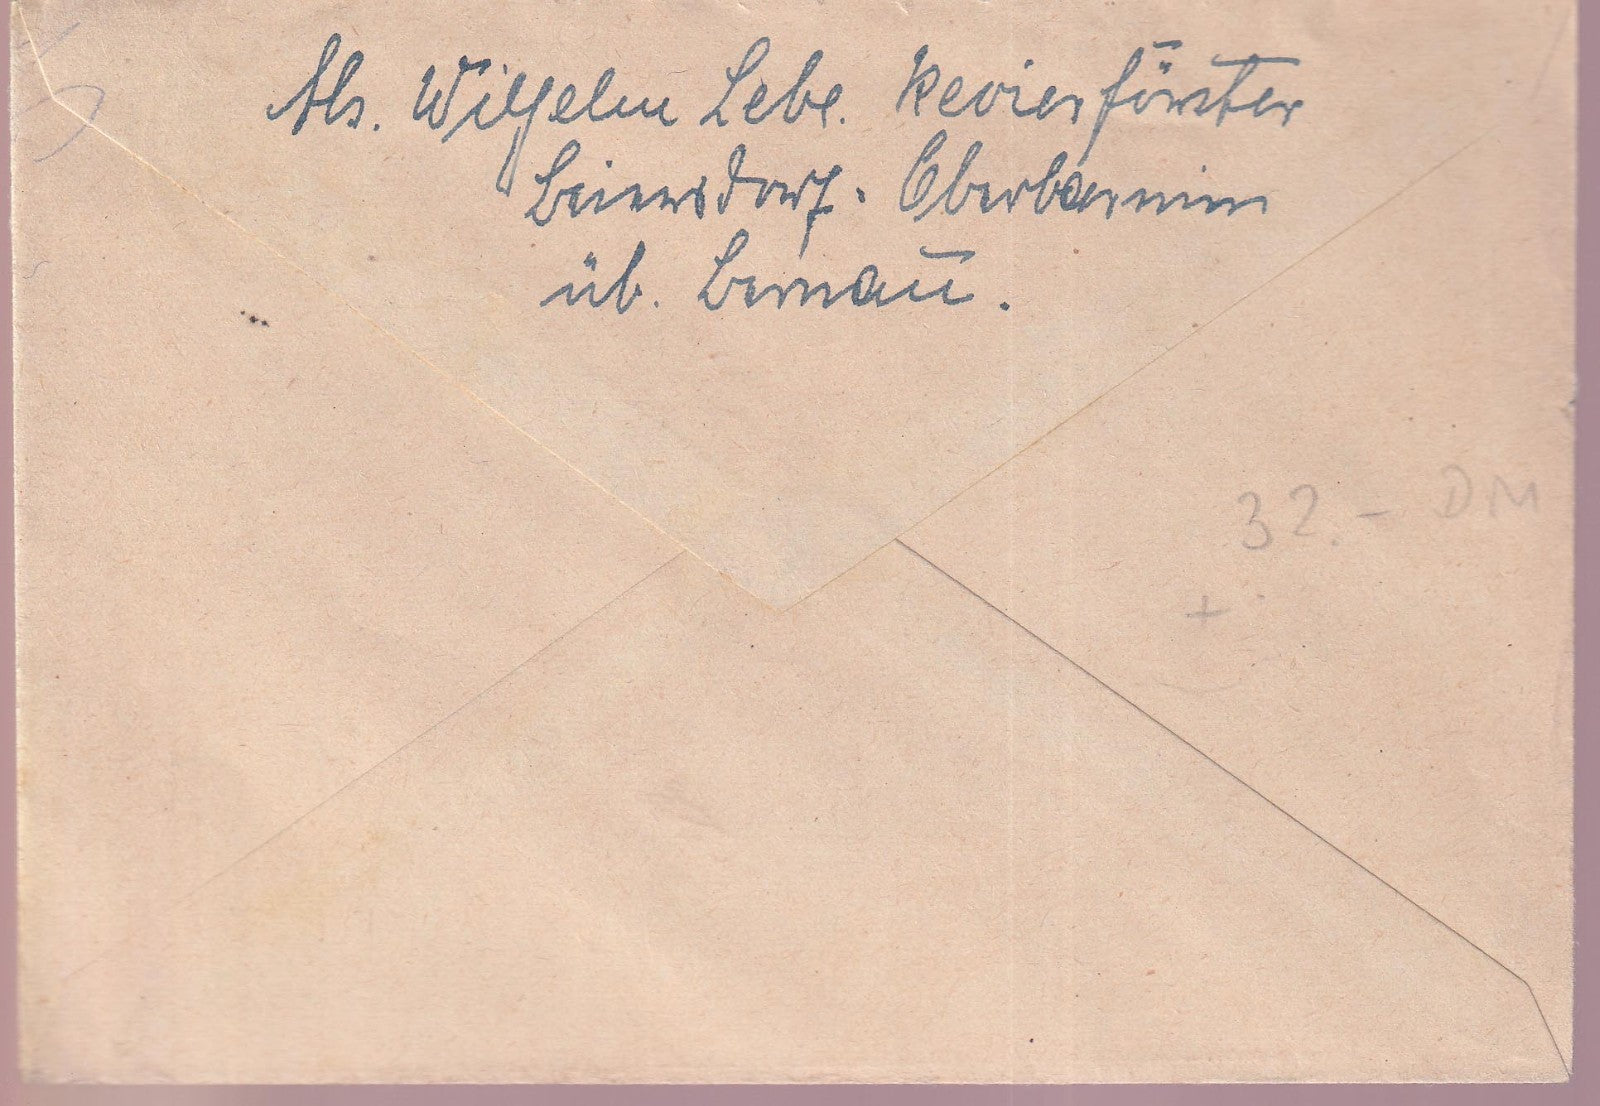 Abs. Wilhelm Lebe. Revierförster
Beiersdorf. Oberbarnim
üb. Bernau.
32.- DM
+